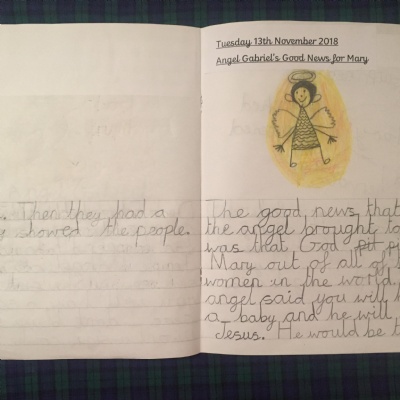 Tuesday 13th November 2018
Angel Gabriel's Good News for Mary
. Then they had a
showed the people.
The good news that
the angel brought to
was that God
Mary out of all of
women in the world
angel said you will
a baby and he will
Jesus. He would be